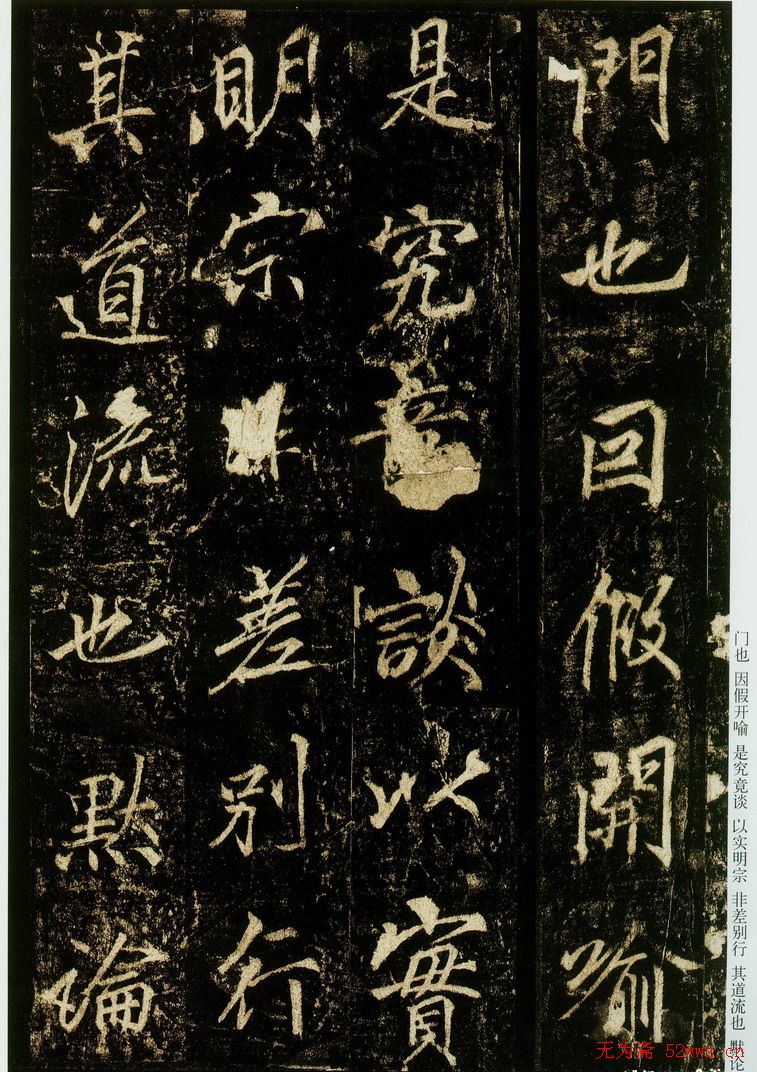 門也囙假開喻
是究竟談以實
明宗非差別行
其道流也黙論
门也 因假开喻 是究竟谈 以实明宗 非差别行 其道流也 默论
无为斋 52wwz.cn